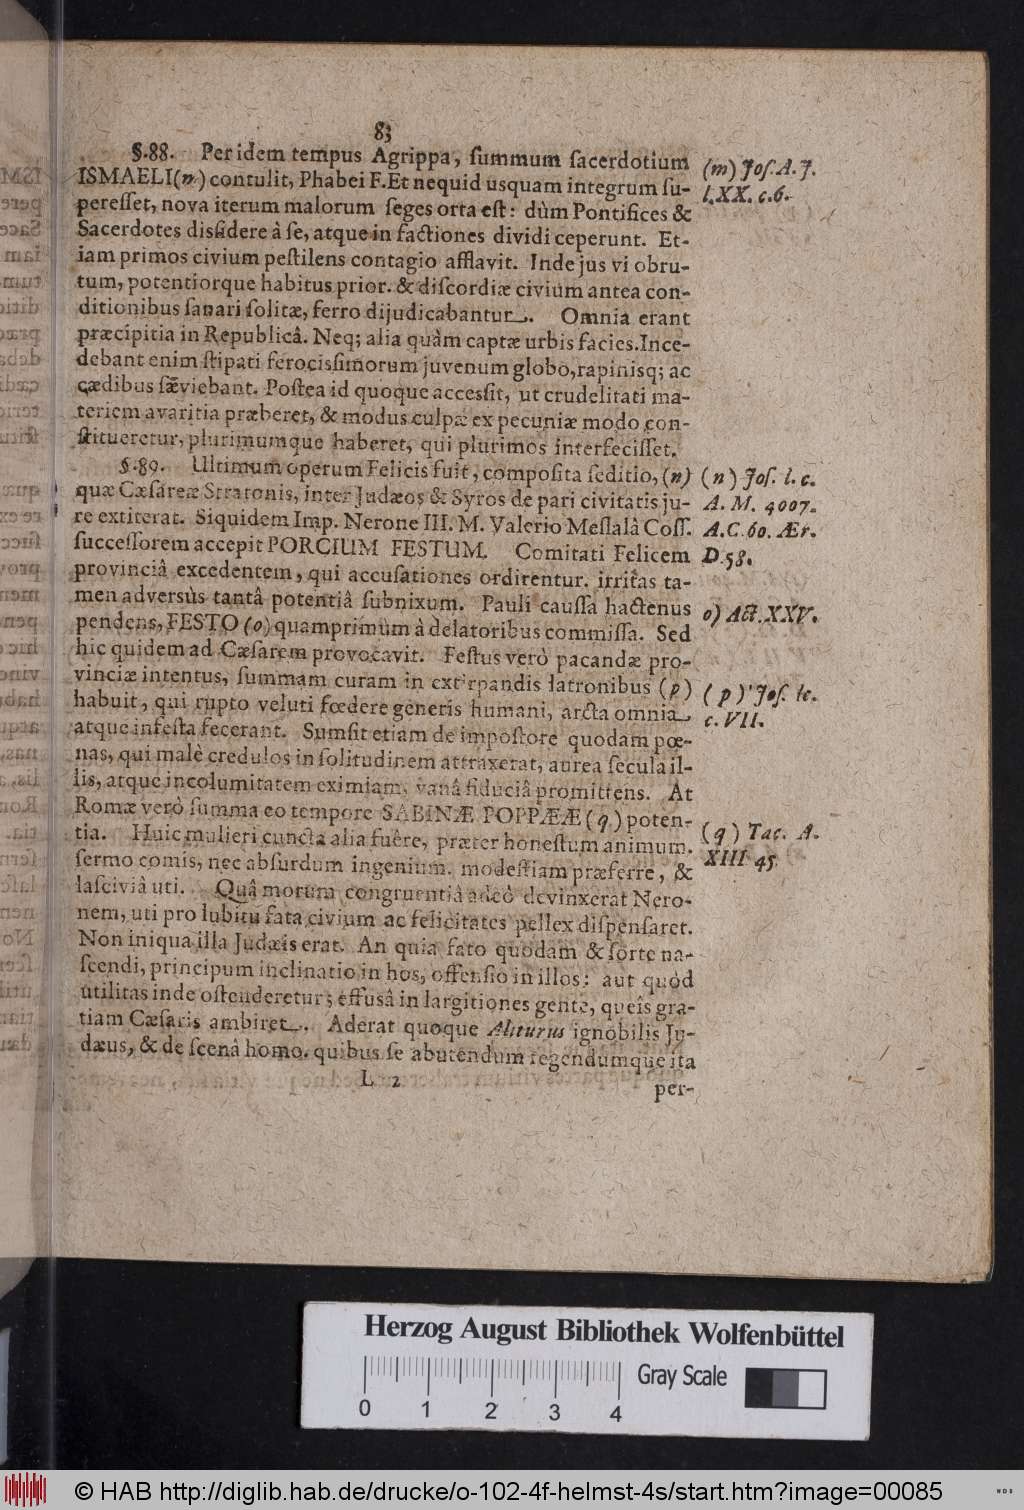 83
§.88. Per idem tempus Agrippa, ſummum ſacerdotium
ISMAELI(n) contulit, Phabei F.Et nequid usquam integrum ſu-
pereſſet, nova iterum malorum ſeges orta eſt: dùm Pontifices &
Sacerdotes disſidere à ſe, atque in factiones dividi ceperunt. Et-
iam primos civium peſtilens contagio afflavit. Inde jus vi obru-
tum, potentiorque habitus prior. & diſcordiæ civium antea con-
ditionibus ſanari ſolitæ, ferro dijudicabantur. Omnia erant
præcipitia in Republicâ. Neq; alia quàm captæ urbis facies.Ince-
debant enim ſtipati ferociſſimorum juvenum globo,rapinisq; ac
cædibus ſæviebant. Poſtea id quoque acceſſit, ut crudelitati ma-
teriem avaritia præberet, & modus culpæ ex pecuniæ modo con-
ſtitueretur, plurimumque haberet, qui plurimos interfeciſſet.
§.89. Ultimum operum Felicis fuit, compoſita ſeditio, (n)
quæ Cæſareæ Stratonis, inter Judæos & Syros de pari civitatis ju-
re extiterat. Siquidem Imp. Nerone III. M. Valerio Meſſalâ Coſſ.
ſucceſſorem accepit PORCIUM FESTUM. Comitati Felicem
provinciâ excedentem, qui accuſationes ordirentur. irritas ta-
men adversùs tantâ potentiâ ſubnixum. Pauli cauſſa hactenus
pendens, FESTO (o) quamprimùm â delatoribus commiſſa. Sed
hic quidem ad Cæſarem provocavit. Feſtus verò pacandæ pro-
vinciæ intentus, ſummam curam in extirpandis latronibus (p)
habuit, qui rupto veluti fœdere generis humani, arcta omnia
atque infeſta fecerant. Sumſit etiam de impoſtore quodam pœ-
nas, qui malè credulos in ſolitudinem attraxerat, aurea ſecula il-
lis, atque incolumitatem eximiam, vanâ fiduciâ promittens. At
Romæ verò ſumma eo tempore SABINÆ POPPÆÆ (q) poten-
tia. Huic mulieri cuncta alia fuêre, præter honeſtum animum.
ſermo comis, nec abſurdum ingenium. modeſtiam præferre, &
laſciviâ uti. Quâ morum congruentiâ adeò devinxerat Nero-
nem, uti pro lubitu fata civium ac felicitates pellex diſpenſaret.
Non iniqua illa Judæis erat. An quia fato quodam & ſorte na-
ſcendi, principum inclinatio in hos, offenſio in illos: aut quòd
utilitas inde oſtenderetur; effusâ in largitiones gente, queîs gra-
tiam Cæſaris ambiret. Aderat quoque Aliturus ignobilis Ju-
dæus, & de ſcenâ homo. quibus ſe abutendum regendumque ita
L 2
per-
(m) Joſ. A. J.
l. XX. c. 6.
(n) Joſ. l. c.
A. M. 4007.
A.C. 60. Ær.
D. 58.
o) Act. XXV.
(p) Joſ. lc.
c. VII.
(q) Tac. A.
XIII 45
Herzog August Bibliothek Wolfenbüttel
0 1 2 3 4
Gray Scale
© HAB http://diglib.hab.de/drucke/o-102-4f-helmst-4s/start.htm?image=00085